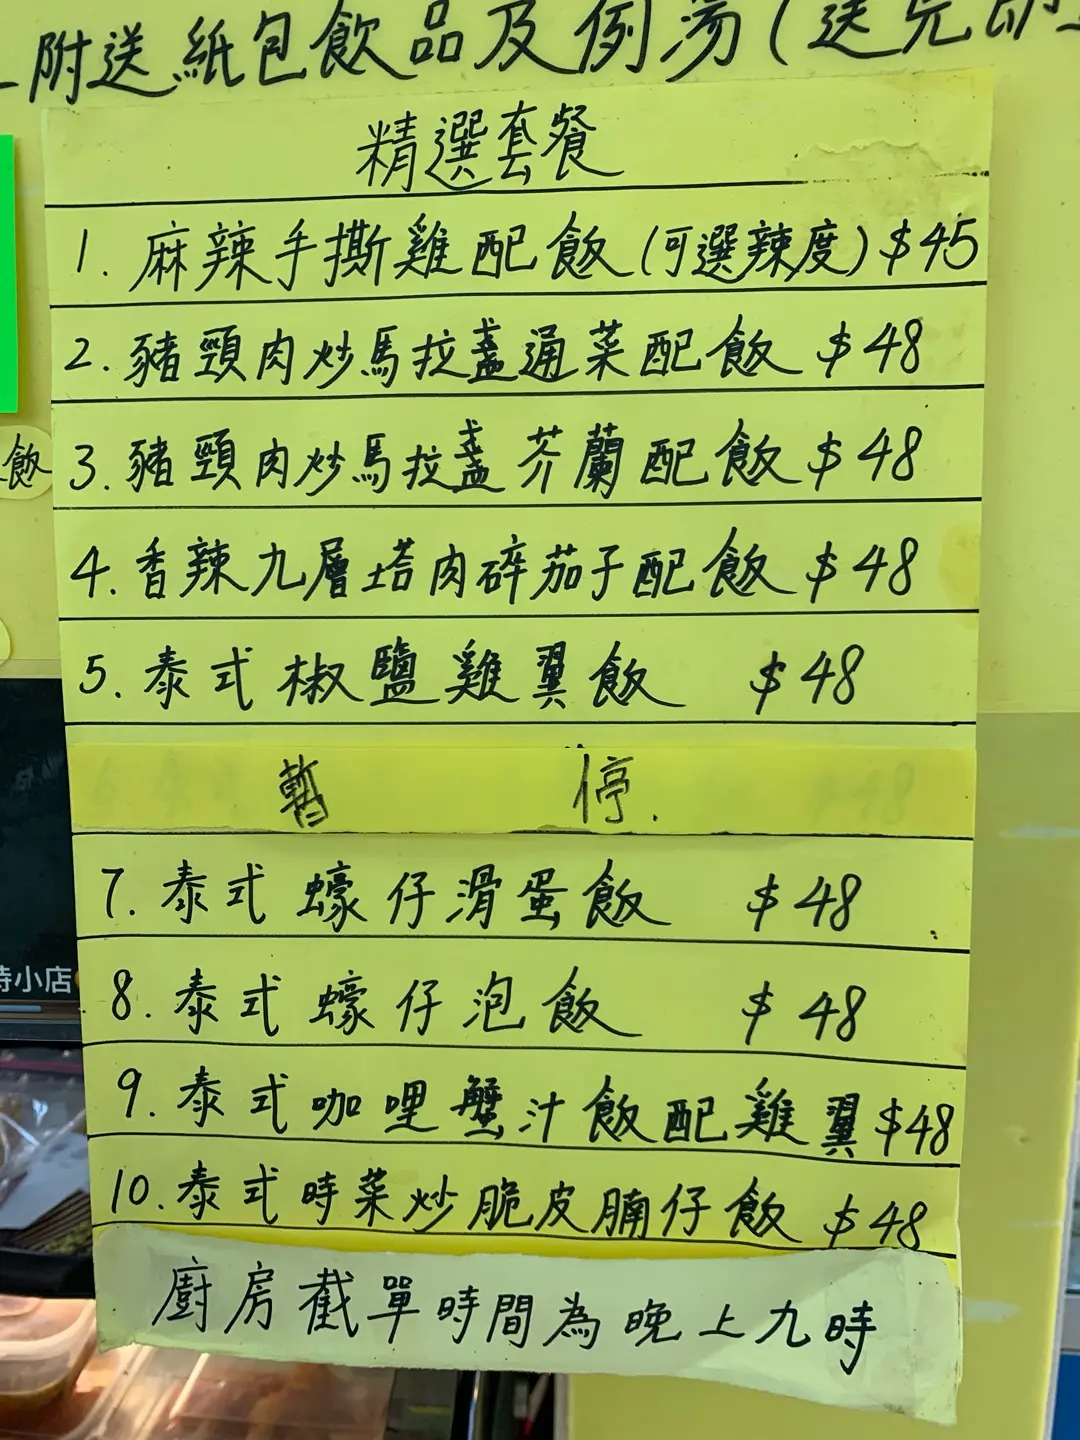 附送紙包飲品及例湯(送完即
精選套餐
1. 麻辣手撕雞配飯(可選辣度)$45
2. 豬頸肉炒馬拉盞通菜配飯 $48
飯
3. 豬頸肉炒馬拉盞芥蘭配飯 $48
4. 香辣九層塔肉碎茄子配飯 $48
5. 泰式椒鹽雞翼飯 $48
暫 停.
7. 泰式蠔仔滑蛋飯 $48
小店
8. 泰式蠔仔泡飯 $48
9. 泰式咖哩蟹汁飯配雞翼 $48
10. 泰式時菜炒脆皮腩仔飯 $48
廚房截單時間為晚上九時